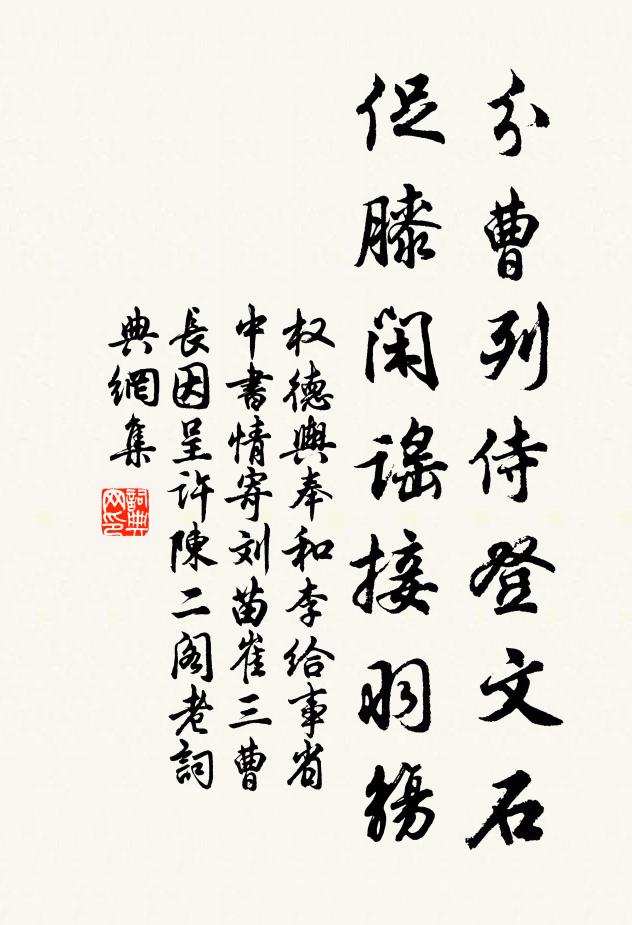 分曹列侍登文石
促膝闲謡接羽觴
权德輿奉和李给事省
中書情寄刘苗崔三曹
長因呈许陳二阁老詞
典網集
詞典网印